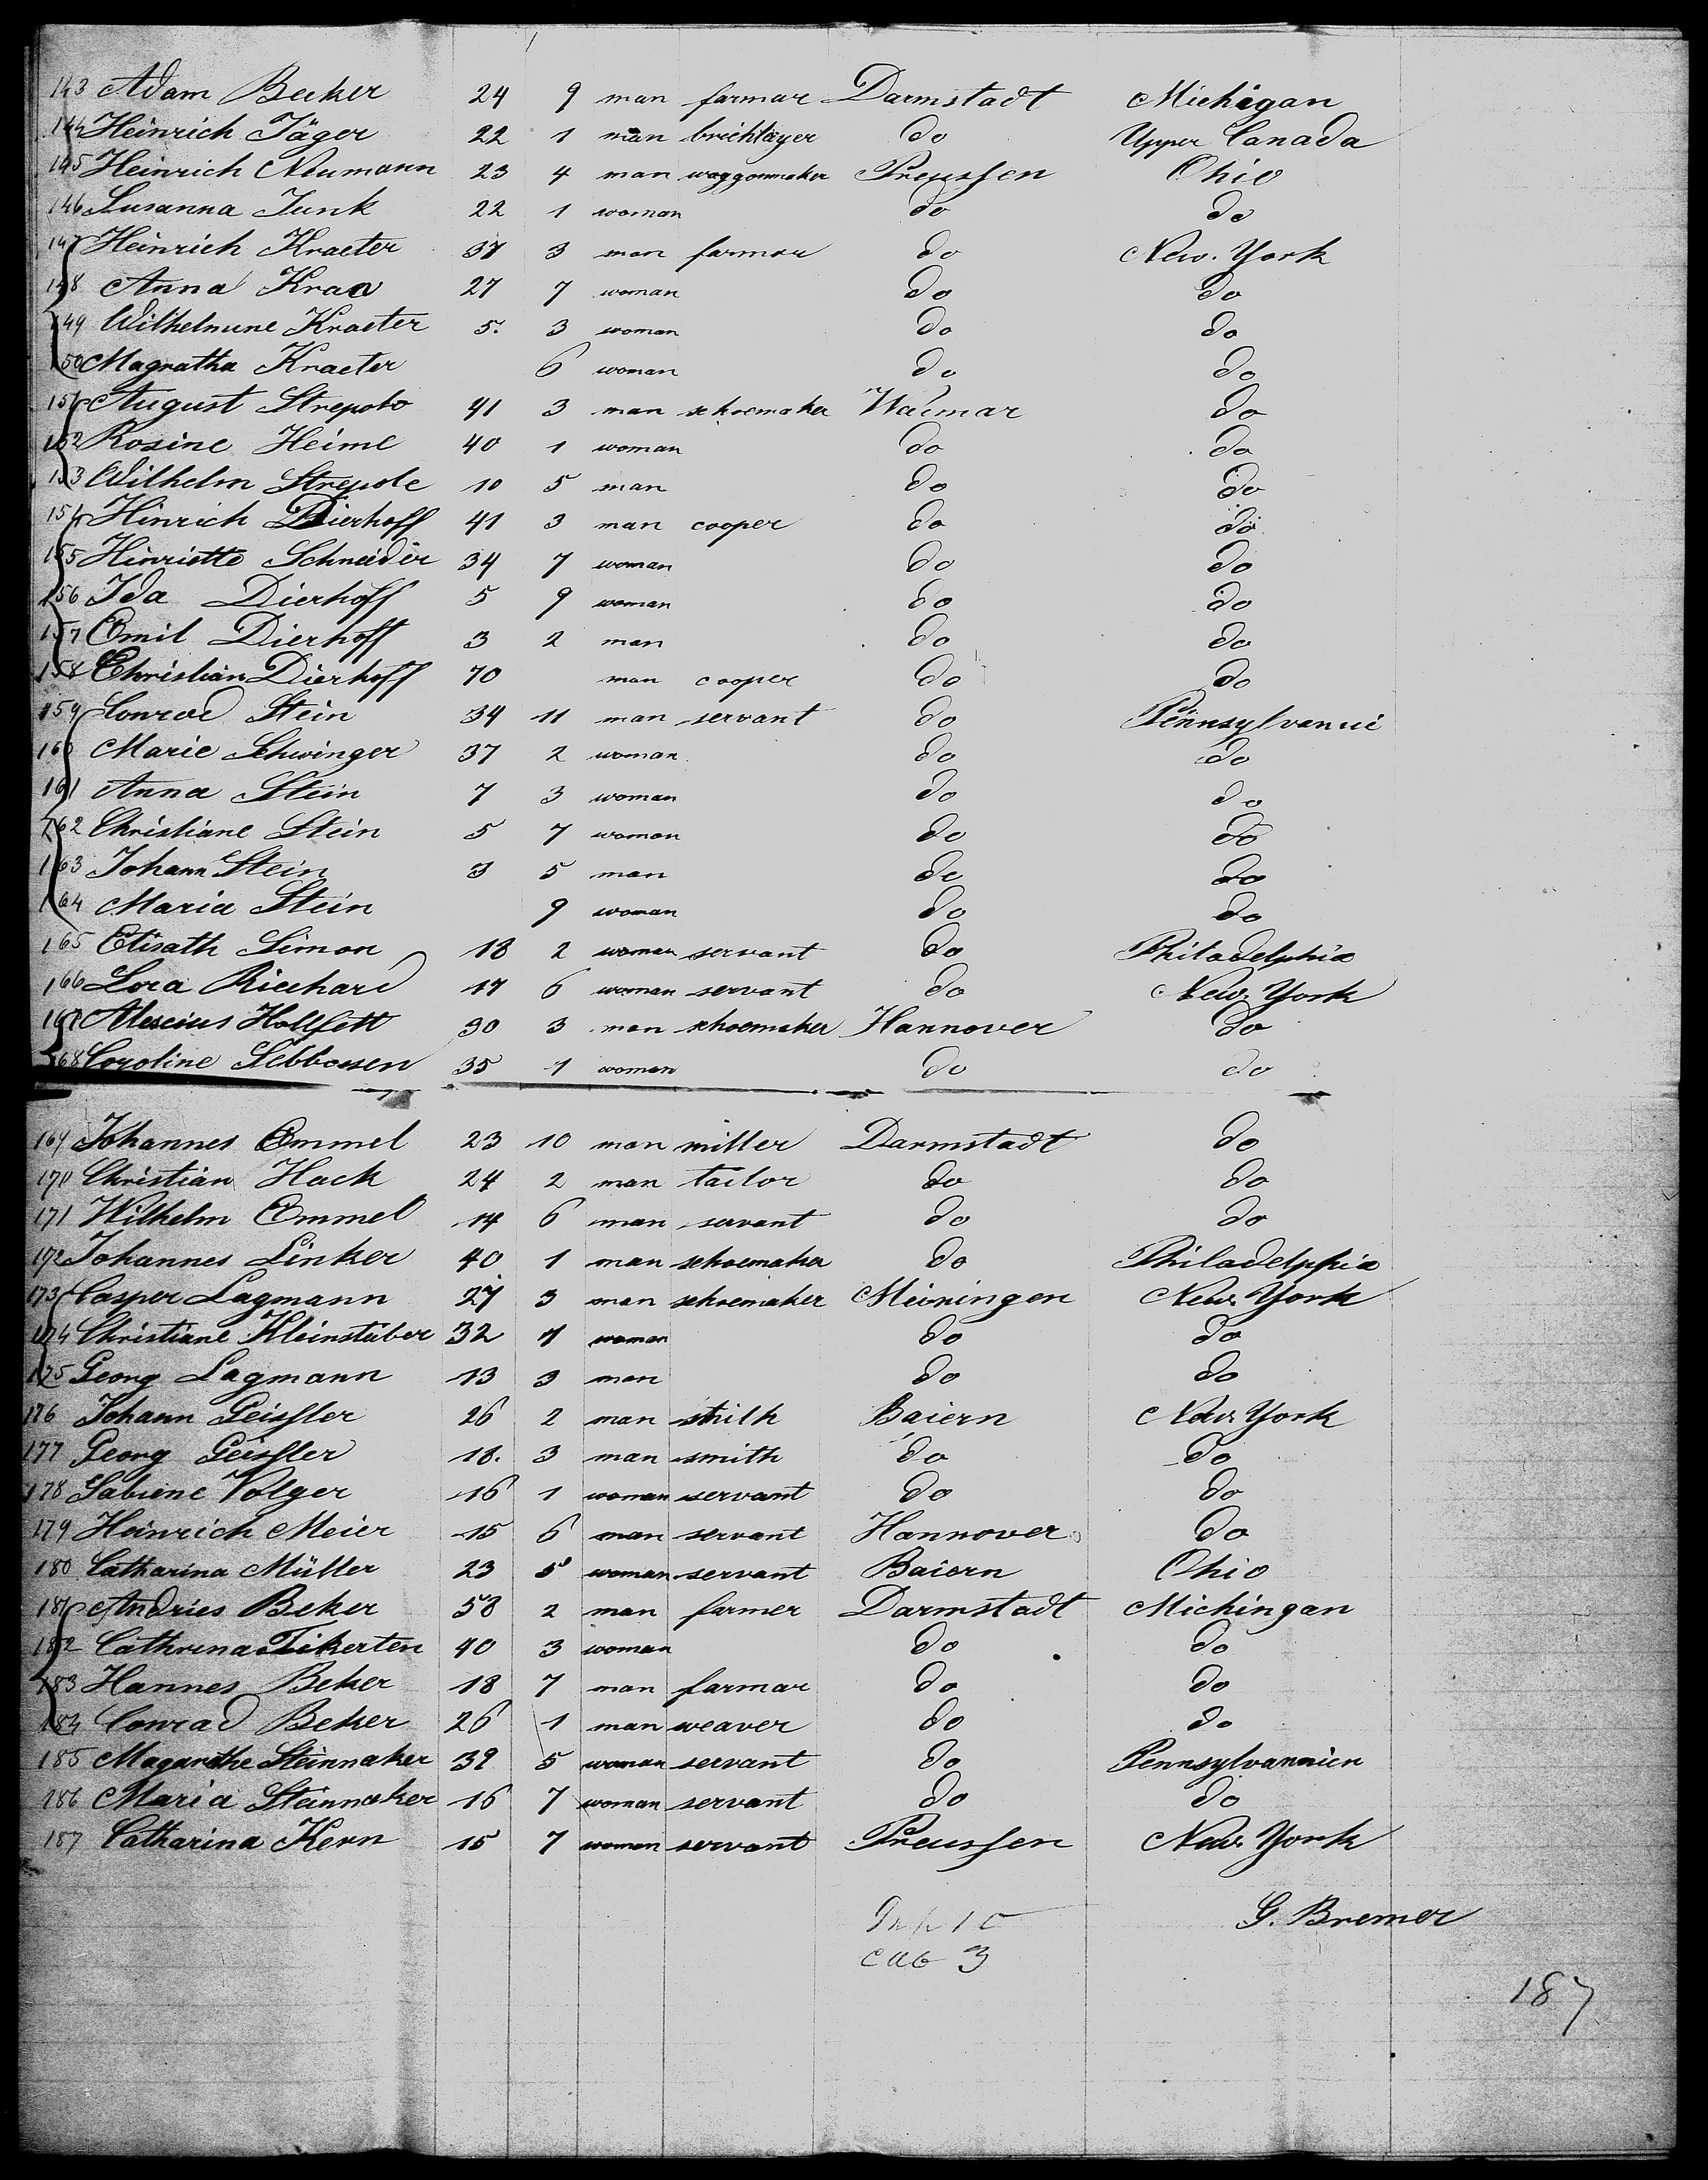 143 Adam Becker 24 9 man farmar Darmstadt Michigan
144 Heinrich Jäger 22 1 man bricklayer do Upper Canada
145 Heinrich Neumann 23 4 man waggonmaker Preussen Ohio
146 Susanna Junk 22 1 woman do do
147 Heinrich Kraeter 37 3 man farmar do New-York
148 Anna Kraa 27 7 woman do do
149 Wilhelmine Kraeter 5. 3 woman do do
150 Magratha Kraeter 6 woman do do
151 August Strepoto 41 3 man schoemaker Waimar do
152 Rosine Heime 40 1 woman do do
153 Wilhelm Strepole 10 5 man do do
154 Hinrich Dierhoff 41 3 man cooper do do
155 Hinriette Schneider 34 7 woman do do
156 Ida Dierhoff 5 9 woman do do
157 Emil Dierhoff 3 2 man do do
158 Christian Dierhoff 70 man cooper do do
159 Conrad Stein 34 11 man servant do Pennsylvanie
160 Marie Schwinger 37 2 woman do do
161 Anna Stein 7 3 woman do do
162 Christiane Stein 5 7 woman do do
163 Johann Stein 3 5 man do do
164 Maria Stein 9 woman do do
165 Elisath Simon 18 2 woman servant do Philadelphia
166 Lora Riechard 17 6 woman servant do New York
167 Alexius Hollfett 30 3 man schoemaker Hannover do
168 Coroline Sebbossen 35 1 woman do do
169 Johannes Emmel 23 10 man miller Darmstadt do
170 Christian Hack 24 2 man tailor do do
171 Wilhelm Emmel 14 6 man servant do do
172 Johannes Linker 40 1 man schoemaker do Philadelphia
173 Casper Lagmann 27 3 man schoemaker Meiningen New York
174 Christiane Kleinstüber 32 7 woman do do
175 Georg Lagmann 13 3 man do do
176 Johann Geissler 26 2 man smith Baiern New York
177 Georg Geissler 18. 3 man smith do do
178 Sabiene Volger 16 1 woman servant do do
179 Heinrich Meier 15 6 man servant Hannover do
180 Catharina Müller 23 5 woman servant Baiern Ohio
181 Andries Beker 58 2 man farmer Darmstadt Michingan
182 Cathrina Tikerten 40 3 woman do do
183 Hannes Beker 18 7 man farmar do do
184 Conrad Beker 26 1 man weaver do do
185 Magarethe Steinmaker 39 5 woman servant do Pennsylvannien
186 Maria Steinmaker 16 7 woman servant do do
187 Catharina Kern 15 7 woman servant Preussen New York
G. Bremer
3
187